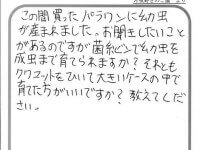 この間買ったパラワンに幼虫
が産まれました。お聞きしたいこと
があるのですが菌糸ビンで幼虫を
成虫まで育てられますか？それとも
クワマットをひいて大きいケースの中で
育た方がいいですか？教えてくだ
さい。